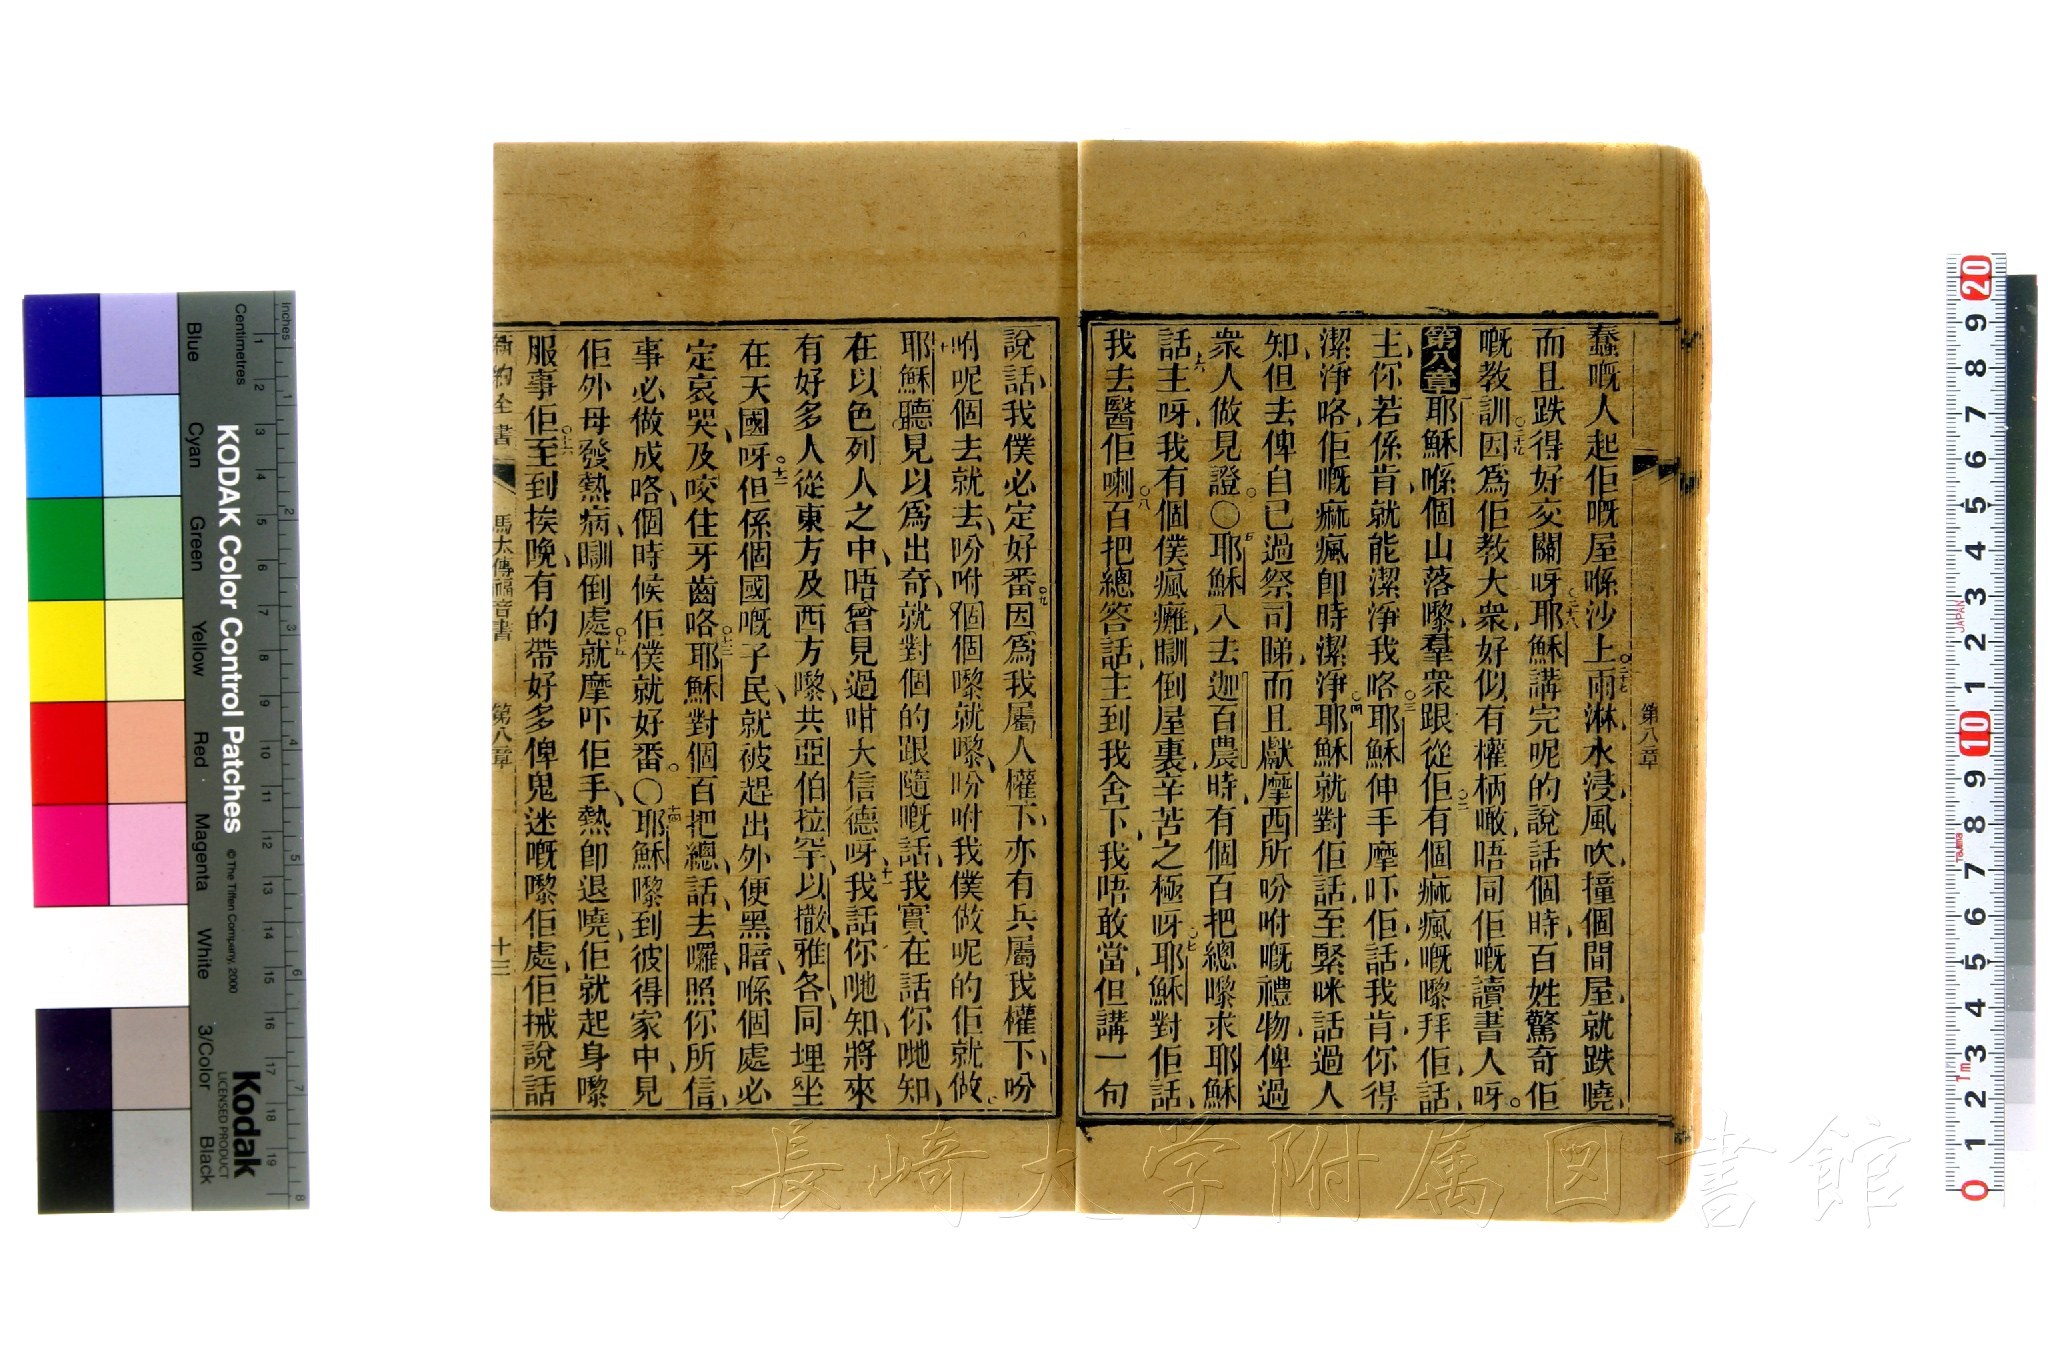 第八章
蠢嘅人起佢嘅屋喺沙上雨淋水浸風吹撞個間屋就跌曉
而且跌得好交關呀耶穌講完呢的說話個時百姓驚奇佢
嘅教訓因爲佢教大衆好似有權柄噉唔同佢嘅讀書人呀
第八章耶穌喺個山落嚟羣衆跟從佢有個痲瘋嘅嚟拜佢話
主你若係肯就能潔淨我咯耶穌伸手摩吓佢話我肯你得
潔淨咯佢嘅痲瘋卽時潔淨耶穌就對佢話至緊咪話過人
知但去俾自已過祭司睇而且獻摩西所吩咐嘅禮物俾過
衆人做見證〇耶穌入去迦百農時有個百把總嚟求耶穌
話主呀我有個僕瘋癱瞓倒屋裏辛苦之極呀耶穌對佢話
我去醫佢喇百把總答話主到我舍下我唔敢當但講一句
說話我僕必定好番因爲我屬人權下亦有兵屬我權下吩
咐呢個去就去吩咐個個嚟就嚟吩咐我僕做呢的佢就做
耶穌聽見以爲出奇就對個的跟隨嘅話我實在話你哋知
在以色列人之中唔曾見過咁大信德呀我話你哋知將來
有好多人從東方及西方嚟共亞伯拉罕以撒雅各同埋坐
在天國呀但係個國嘅子民就被趕出外便黑暗喺個處必
定哀哭及咬住牙齒咯耶穌對個百把總話去囉照你所信
事必做成咯個時候佢僕就好番〇耶穌嚟到彼得家中見
佢外母發熱病瞓倒處就摩吓佢手熱卽退曉佢就起身嚟
服事佢至到挨晚有的帶好多俾鬼迷嘅嚟佢處佢搣說話
新約全書 馬太傳福音書 第八章 十三
長崎大学附属図書館
KODAK Color Control Patches
© The Tiffen Company, 2000
Kodak
LICENSED PRODUCT
Inches
Centimetres
Blue
Cyan
Green
Yellow
Red
Magenta
White
3/Color
Black
JAPAN